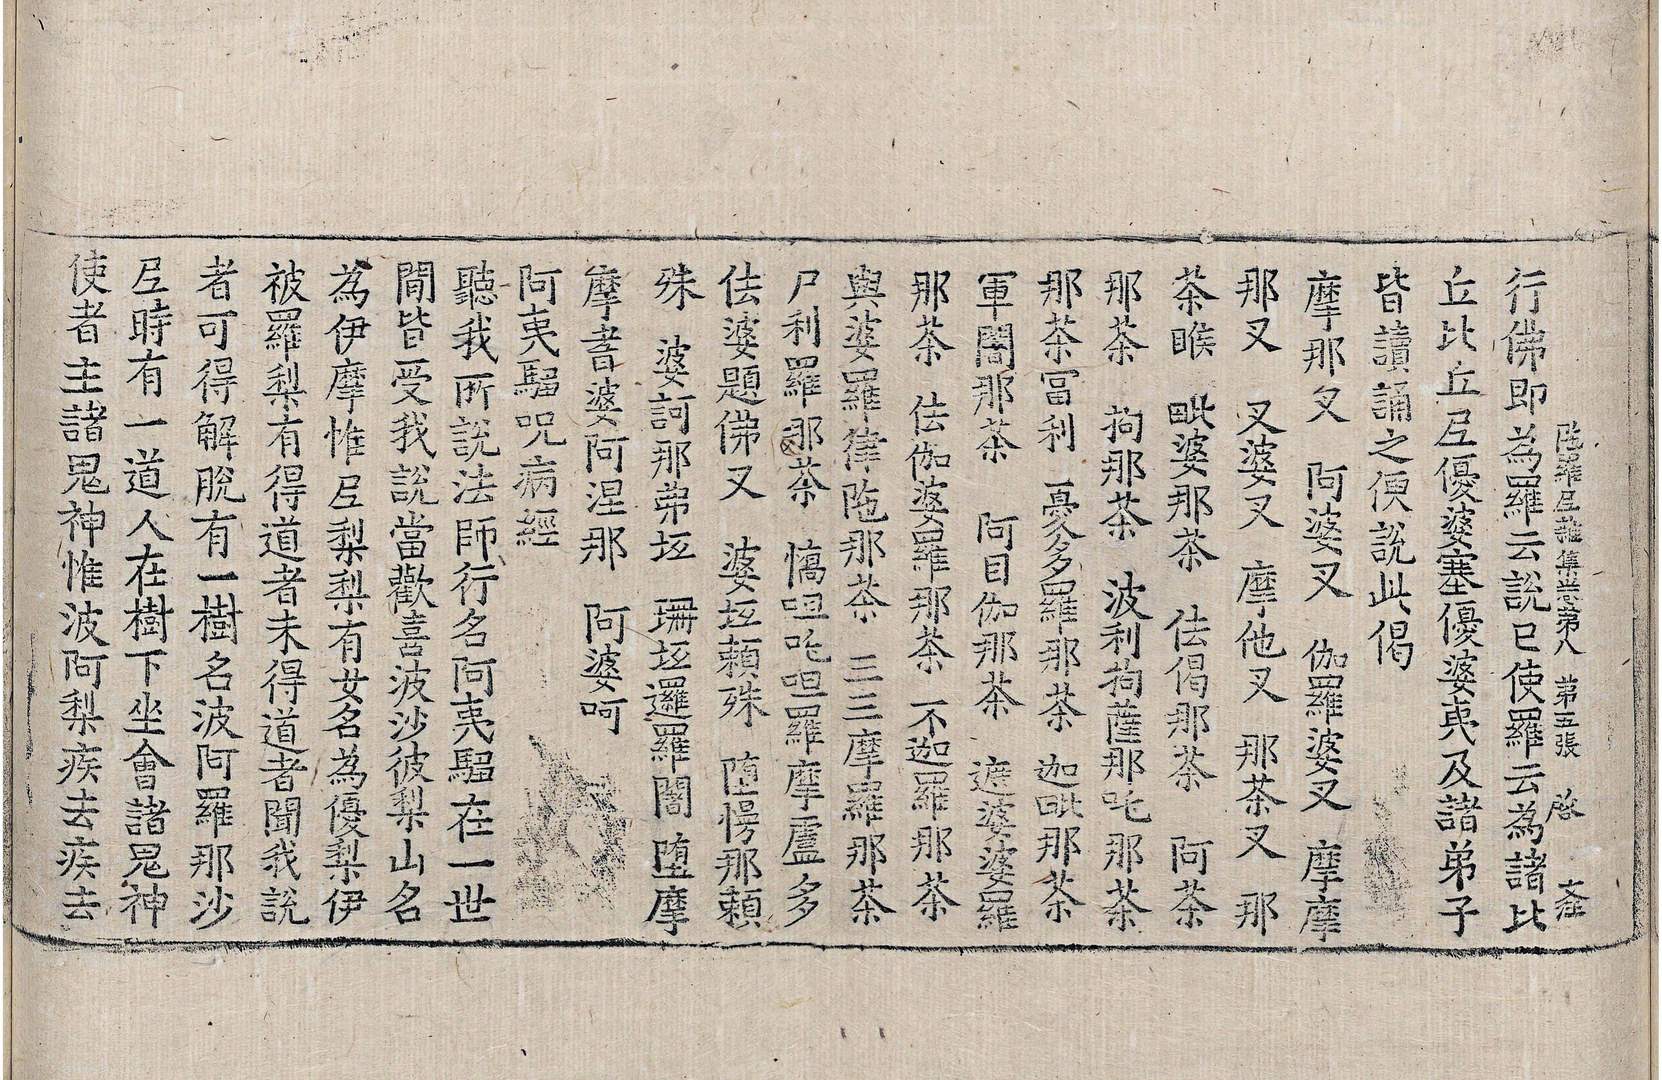 陁羅尼雜集卷第八 第五張 啓
行佛即為羅云說已使羅云為諸比
丘比丘尼優婆塞優婆夷及諸弟子
皆讀誦之便說此偈
摩那叉 阿婆叉 伽羅婆叉 摩摩
那叉 叉婆叉 摩他叉 那茶叉 那
茶睺 毗婆那茶 佉偈那茶 阿茶
那茶 拘那茶 波利拘薩那吒那茶
那茶冨利 憂多羅那茶 迦毗那茶
軍闍那茶 阿目伽那茶 遮婆婆羅
那茶 佉伽婆羅那茶 不迦羅那茶
與婆羅律陁那茶 三三摩羅那茶
尸利羅那茶 慯呾吒呾羅摩盧多
佉婆題佛叉 婆坘頼殊 堕愣那頼
殊 婆訶那弟坘 珊坘邏羅闍 堕摩
摩耆婆阿涅那 阿婆呵
阿夷騶呪病經
聽我所說法師行名阿夷騶在一世
閒皆受我說當歡喜波沙彼梨山名
為伊摩惟尼梨梨有女名為優梨伊
被羅梨有得道者未得道者聞我說
者可得解脫有一樹名波阿羅那沙
尼時有一道人在樹下坐會諸鬼神
使者主諸鬼神惟波阿梨疾去疾去